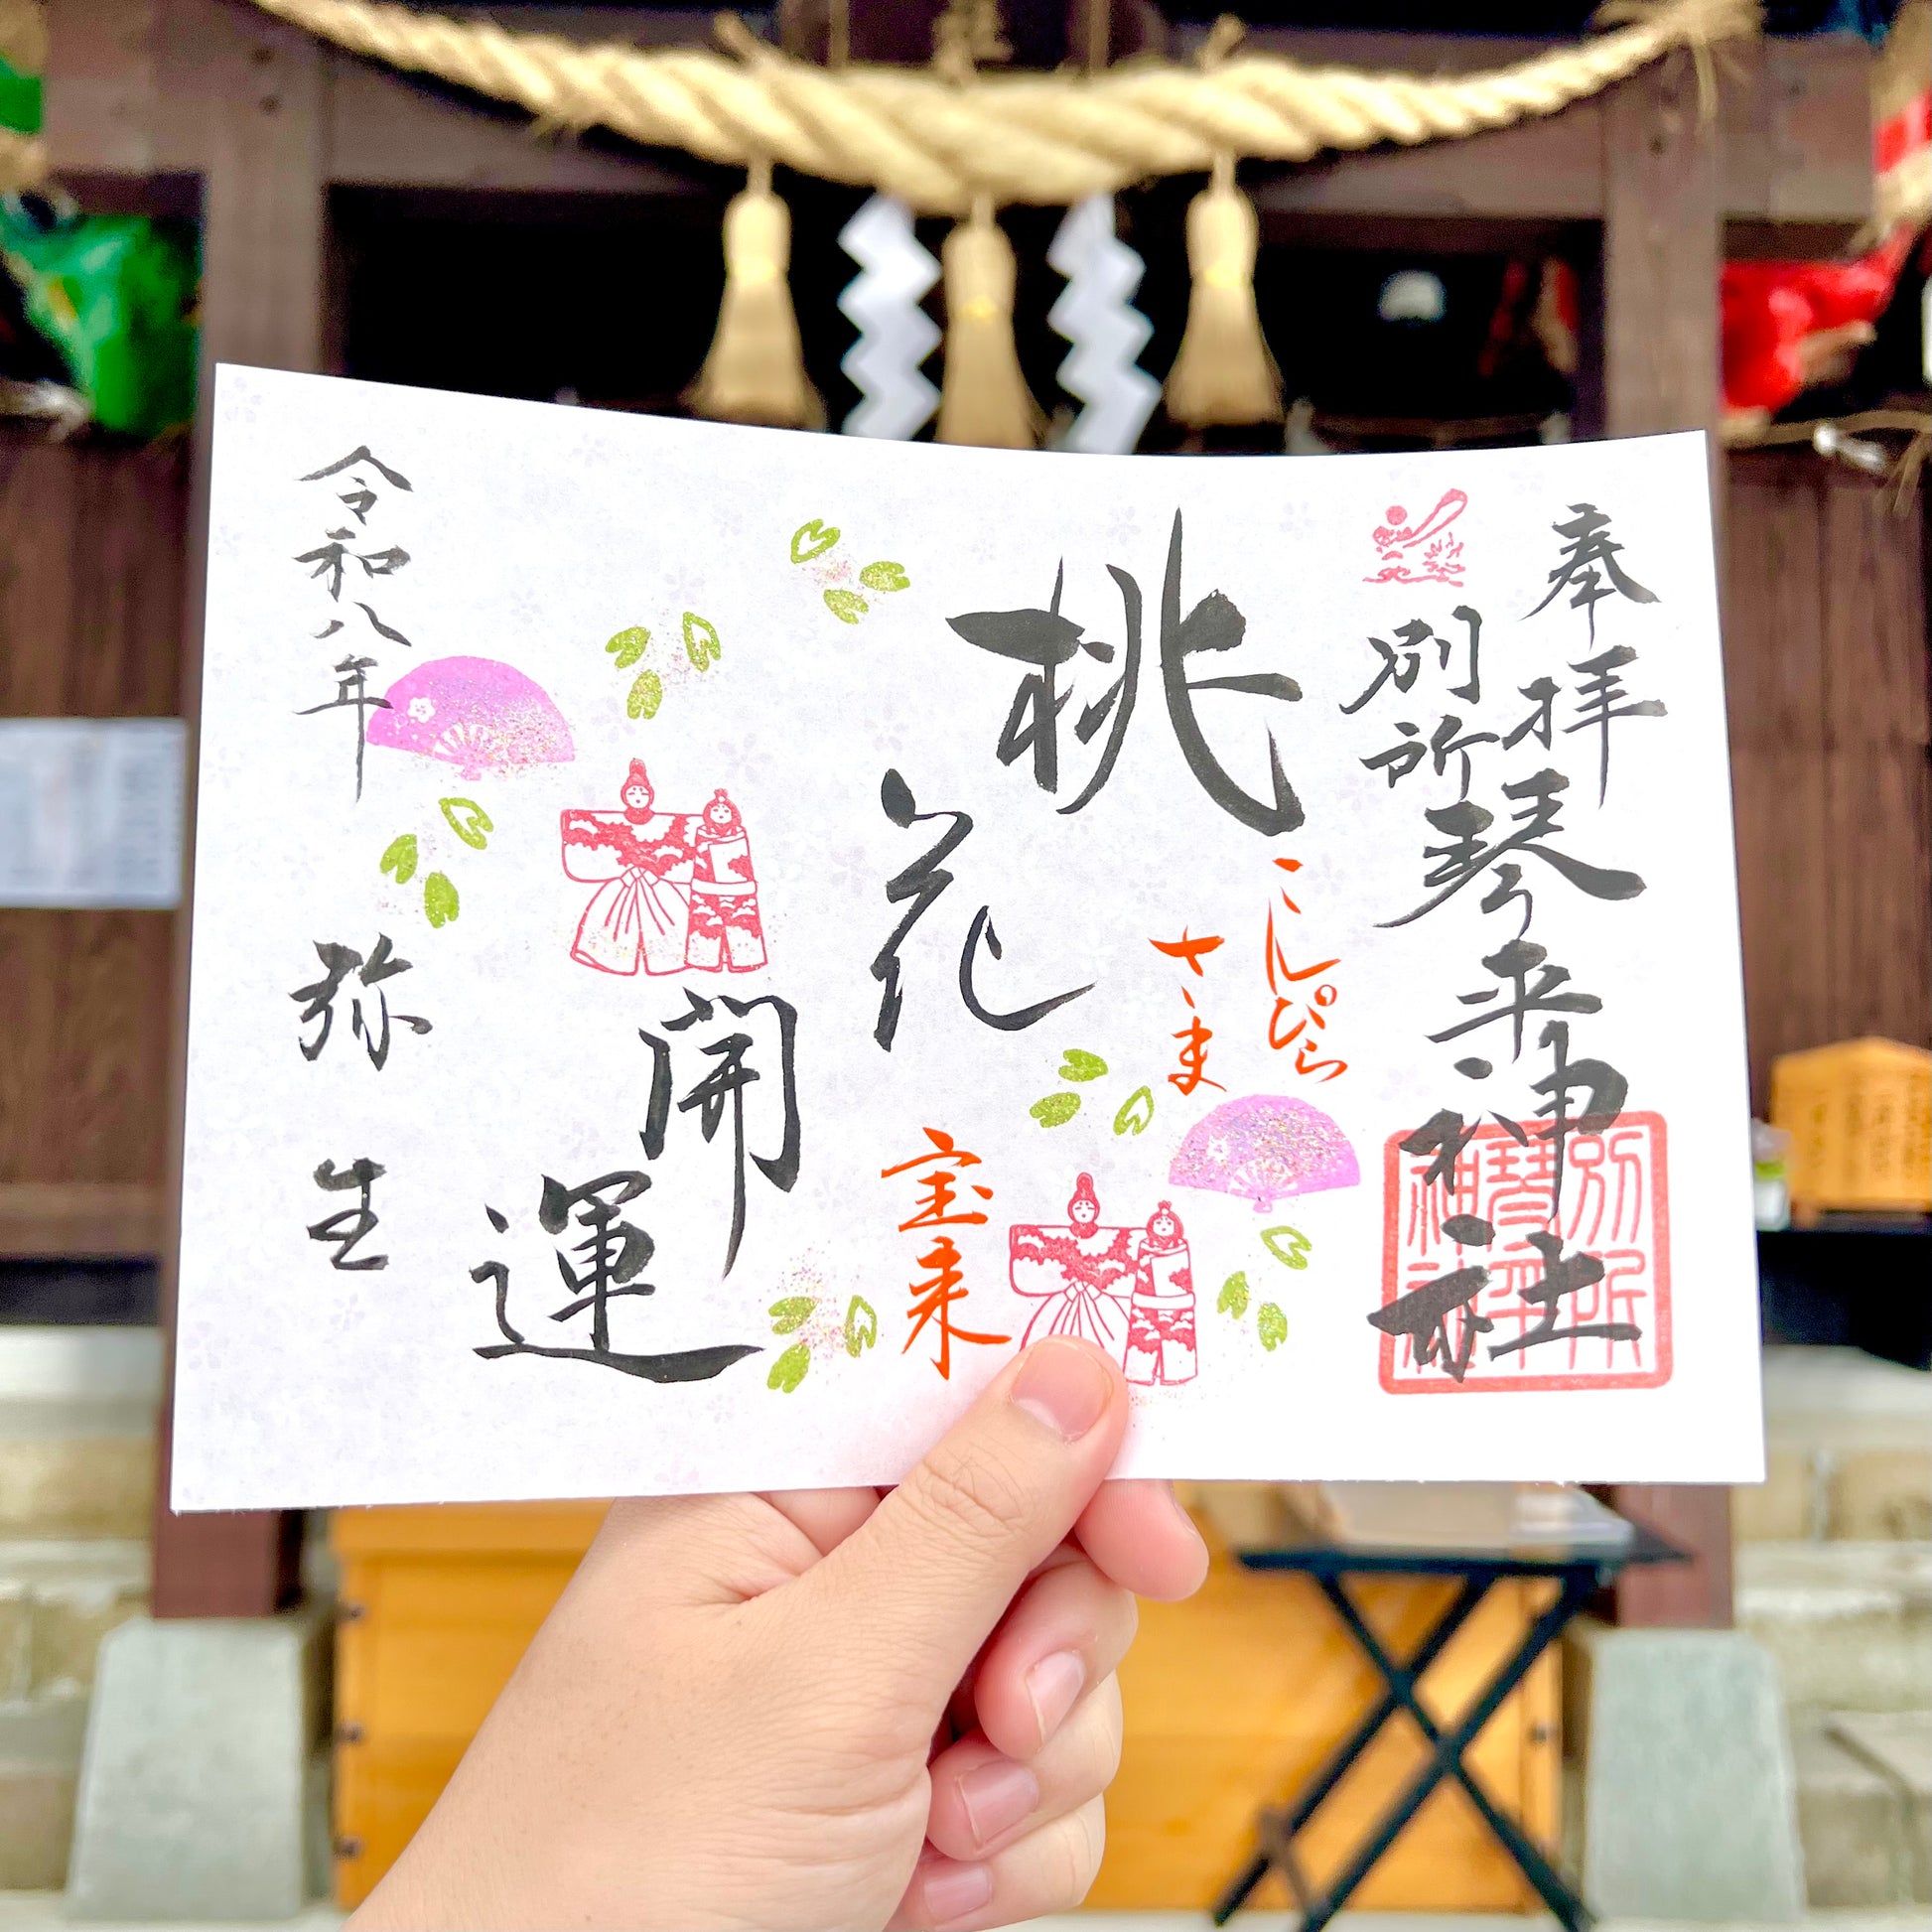 奉拝
別所琴平神社
別所
琴平
神社
桃花
こんぴら
さま
宝来
開運
令和八年
弥生